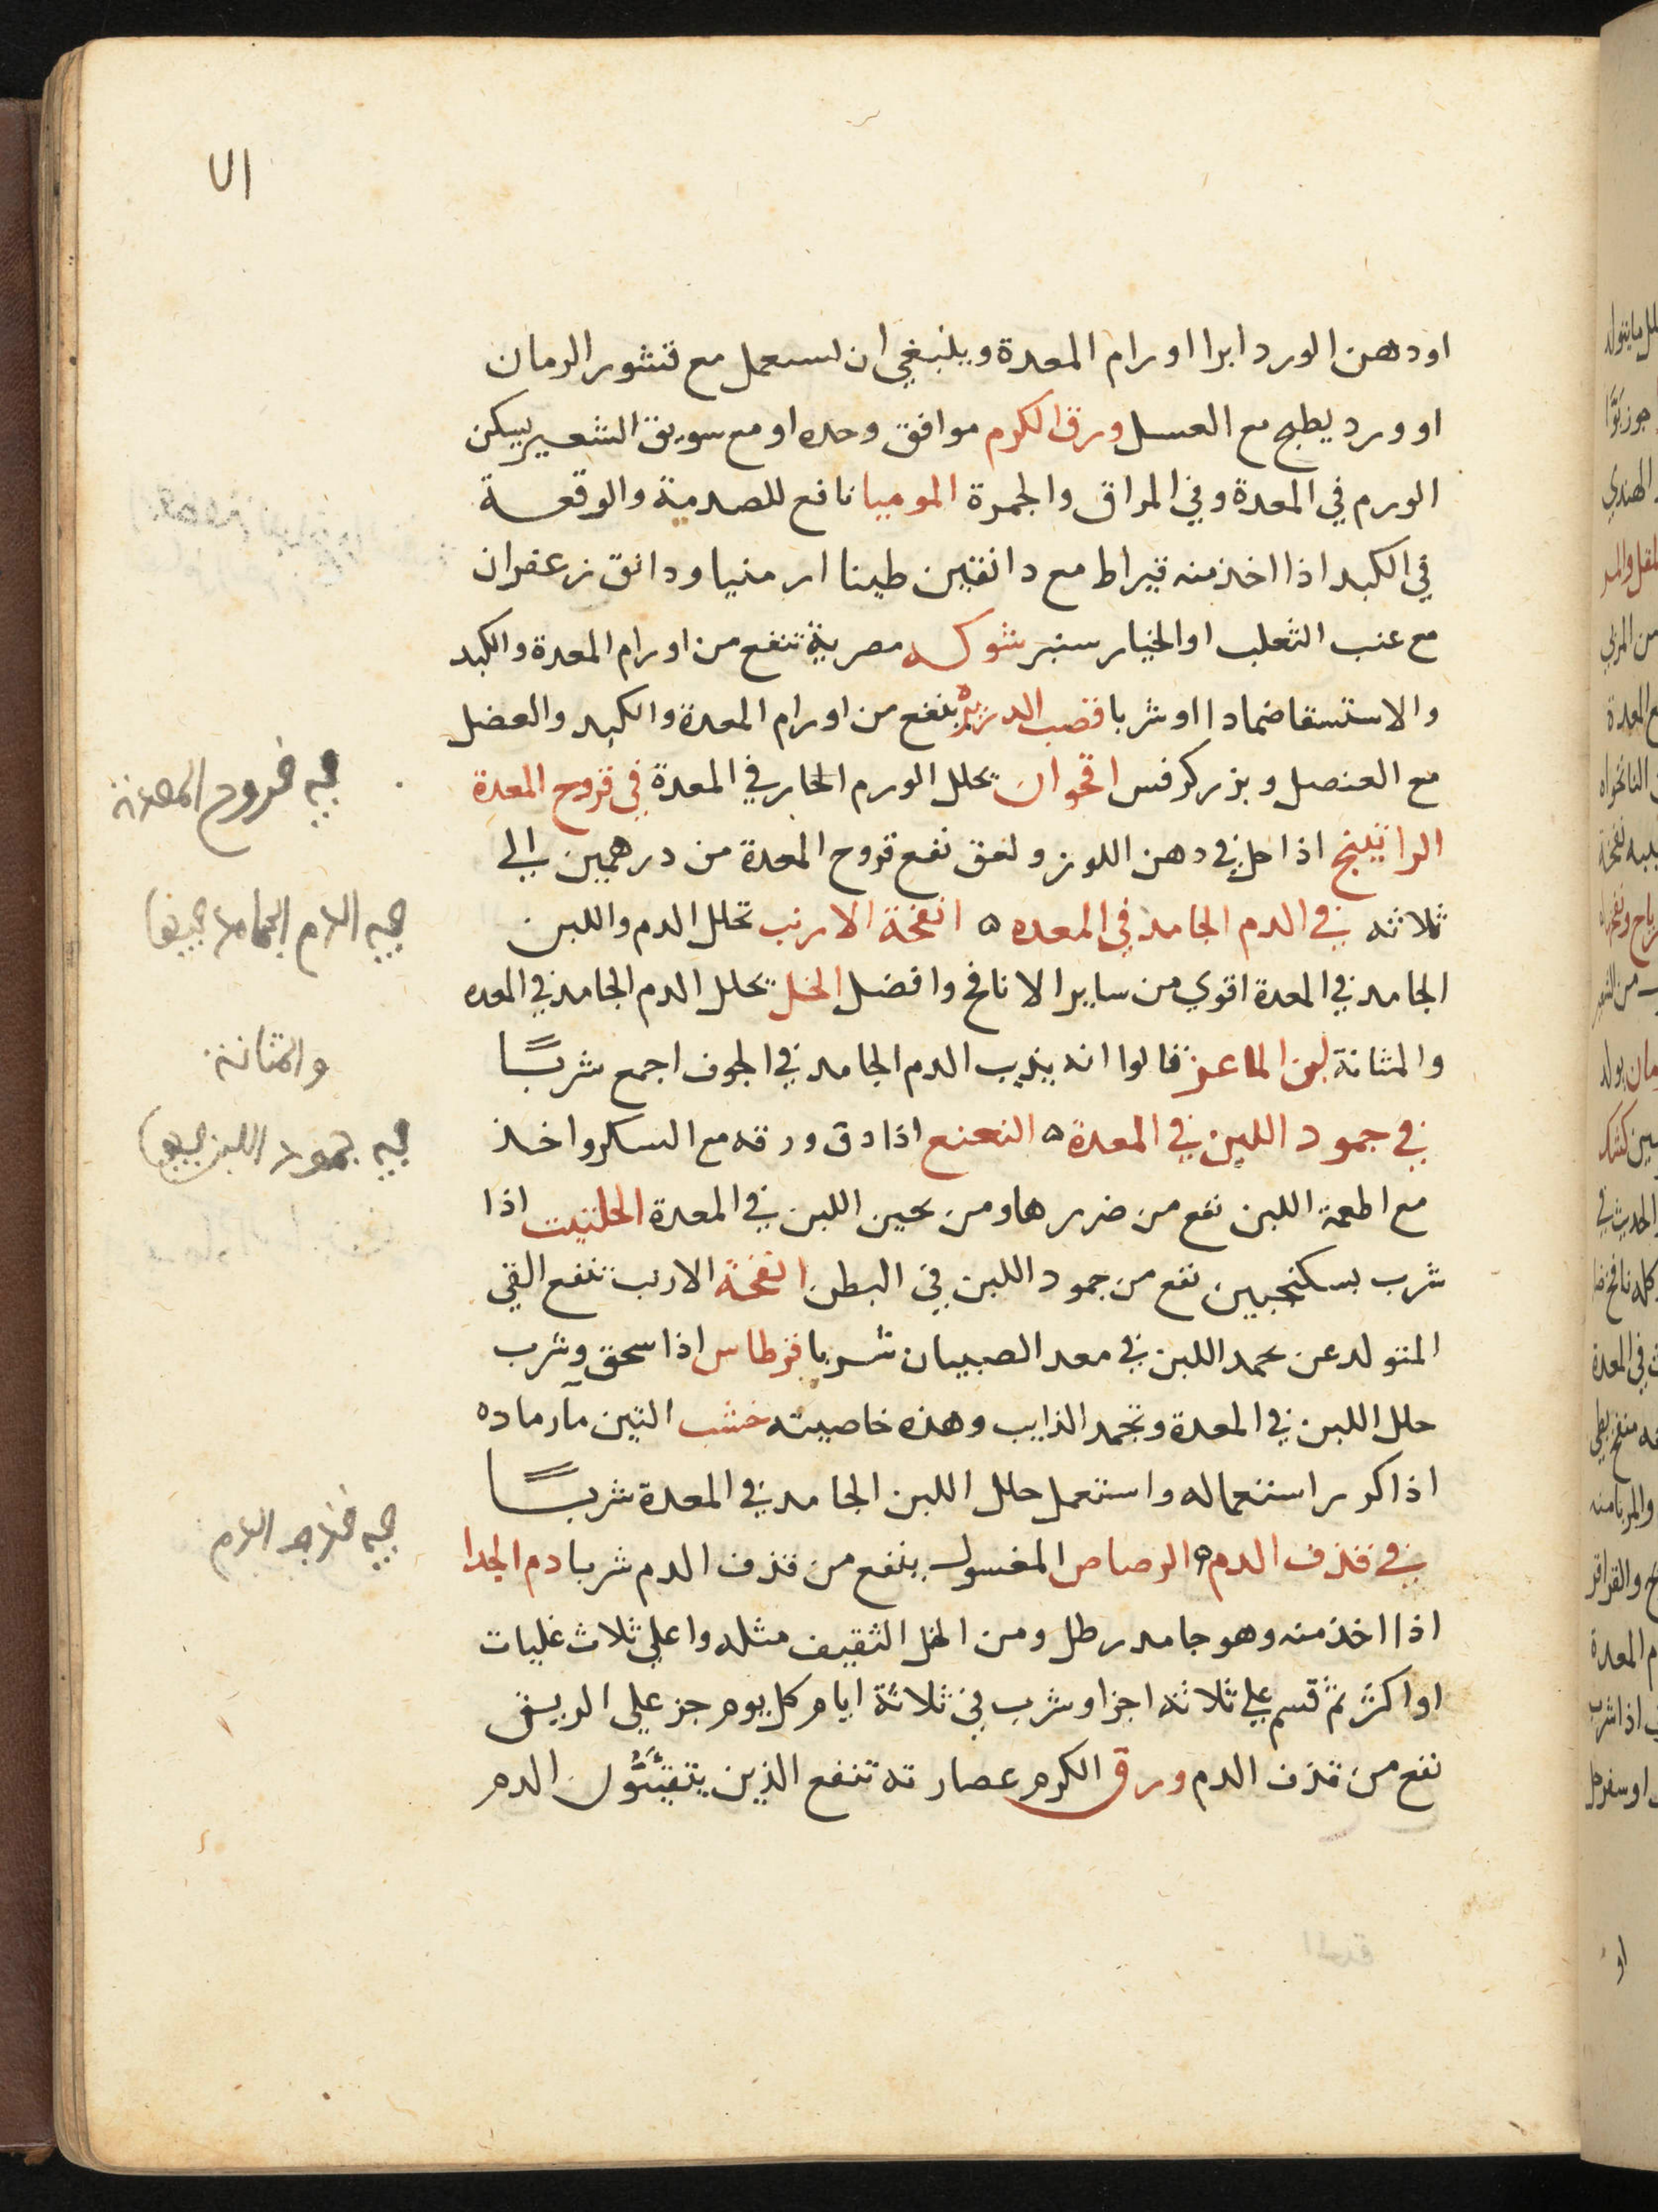 ٧١
او دهن الورد ابرا اورام المعدة وينبغي ان يستعمل مع قشور الرمان
او ورد يطبخ مع العسل ورق الكرم موافق وحده او مع سويق الشعير يسكن
الورم في المعدة وفي المراق والجمرة الموميا نافع للصدمة والوقعة
في الكبد اذا اخذ منه قيراط مع دانقين طينا ارمنيا ودانق زعفران
مع عنب الثعلب او الخيار سنبر شوكه مصرية تنفع من اورام المعدة والكبد
والاستسقا ضمادا او شربا قصب الدريره ينفع من اورام المعدة والكبد والعضل
مع العنصل وبزر كرفس اقحوان يحلل الورم الحار في المعدة في قروح المعدة
الراتينج اذا حل في دهن اللوز ولعق نفع قروح المعدة من درهمين الي
ثلاثه في الدم الجامد في المعده ه انفحة الارنب تحلل الدم واللبن
الجامد في المعدة اقوي من ساير الانافح وافضل الخل يحلل الدم الجامد في المعده
والمثانة لبن الماعز قالوا انه يذيب الدم الجامد في الجوف اجمع شربًا
في جمود اللبن في المعدة ه النعنع اذا دق ورقه مع السكر واخذ
مع اطعمة اللبن نفع من ضررها ومن تجبن اللبن في المعدة الحلتيت اذا
شرب بسكنجبين نفع من جمود اللبن في البطن انفحة الارنب تنفع القي
المتولد عن تجمد اللبن في معد الصبيان شربا قرطاس اذا سحق وشرب
حلل اللبن في المعدة وتجمد الذايب وهذه خاصيته خشب التين مآ رماده
اذا كرر استعماله واستعمل حلل اللبن الجامد في المعدة شربًا
في قذف الدم ه الرصاص المغسول ينفع من قذف الدم شربا دم الجدا
اذا اخذ منه وهو جامد رطل ومن الخل الثقيف مثله واغلي ثلاث غليات
او اكثر ثم قسم علي ثلاثه اجزا وشرب في ثلاثة ايام كل يوم جز علي الريق
نفع من قذف الدم ورق الكرم عصارته تنفع الذين يتقيئون الدم
والمثانة